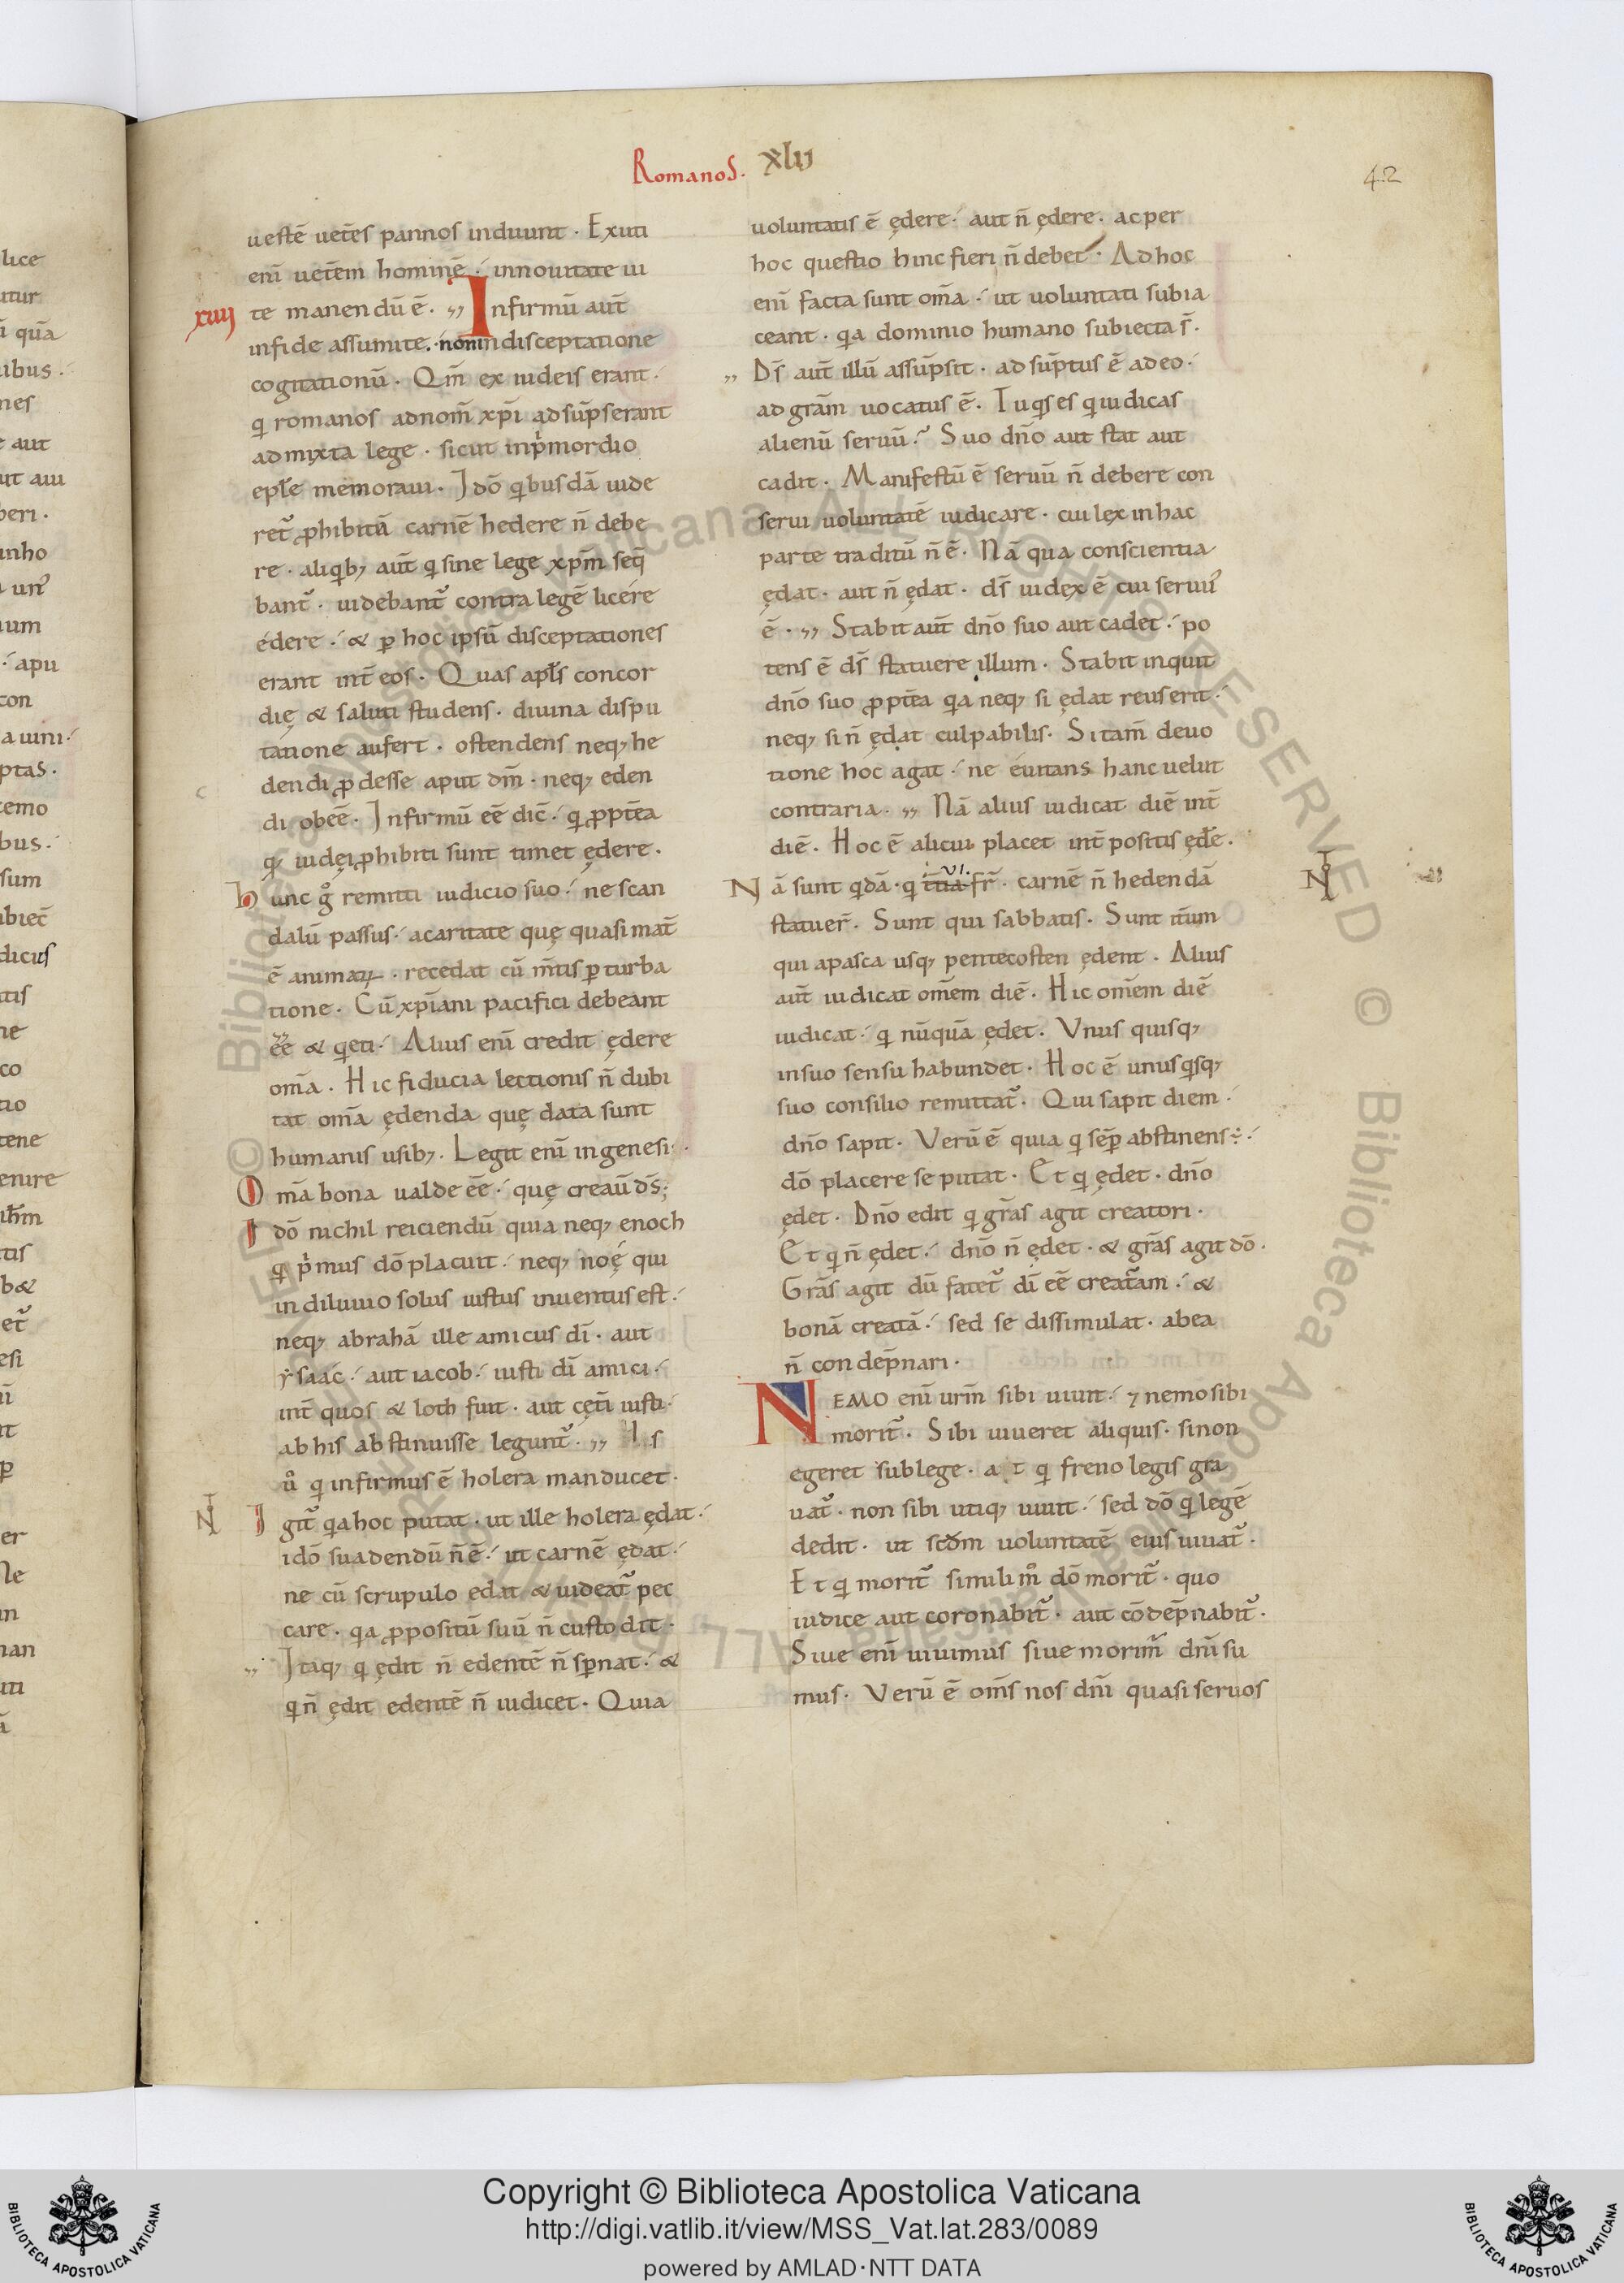 Romanos. xlii
42
uestē uetēs pannos induunt. Exuti
enī uetēm hominē. innouitate ui
xiiij te manendū ē. Infirmū aut̄
infide assumite. non indisceptatione
cogitationū. Qm̄ ex iudeis erant.
q romanos adnom̄ xp̄i adsūpserant
admixta lege. sicut inp̍mordio
epl̄e memoraui. Idō q̍busdā uide
ret᷑ ꝓhibitū carnē hedere n̄ debe
re. aliq̍bꝫ aut̄ q sine lege xp̄m seq̄
bant᷑. uidebant᷑ contra legē licere
edere. & ꝑ hoc ipsū disceptationes
erant int̄ eos. Quas apl̄s concor
dię & saluti studens. diuina dispu
tatione aufert. ostendens neqꝫ he
dendi ꝓdesse aput dm̄. neqꝫ eden
di obeē. Infirmū eē dic̄. q ꝓpt̄ea
qꝫ iudęi ꝓhibiti sunt timet ędere.
hunc g̊ remitti iudicio suo. ne scan
dalū passus. acaritate quę quasi mat̄
ē animaꝝ. recedat cū m̄tis ꝑturba
tione. Cū xp̄iani pacifici debeant
eē & q̍eti. Alius enī credit ędere
om̄a. Hic fiducia lectionis n̄ dubi
tat om̄a ędenda quę data sunt
humanis usibꝫ. Legit enī ingenesi.
Om̄a bona ualde eē. quę creau̅ ds̄;
Idō nichil reiciendū quia neqꝫ enoch
q p̍mus dō placuit. neqꝫ noę qui
indiluuio solus iustus inuentus est.
neqꝫ abrahā ille amicus dī. aut
ysaac. aut iacob. iusti dī amici.
int̄ quos & loth fuit. aut cęt̄i iusti.
abhis abstinuisse legunt᷑. Is
ů q infirmus ē holera manducet.
Igit᷑ q̍a hoc putat. ut ille holera ędat.
idō suadendū n̄ ē. ut carnē ędat.
ne cū scrupulo edat & uideat᷑ pec
care. q̍a ꝓpositū suū n̄ custodit.
Itaqꝫ q ędit n̄ edentē n̄ sꝑnat. &
q n̄ ędit edentē n̄ iudicet. Quia
uoluntatis ē ędere. aut n̄ ędere. ac per
hoc questio hinc fieri n̄ debet. Ad hoc
enī facta sunt om̄a. ut uoluntati subia
ceant. q̍a dominio humano subiecta s̄.
Ds̄ aut̄ illū assūpsit. adsūptus ē adeo.
ad grām uocatus ē. Tu q̍s es q iudicas
alienū seruū. Suo dn̄o aut stat aut
cadit. Manifestū ē seruū n̄ debere con
serui uoluntatē iudicare. cui lex in hac
parte traditū n̄ ē. Nā qua conscientia
ędat. aut n̄ ędat. ds̄ iudex ē cui seruu᷑
ē. Stabit aut̄ dn̄o suo aut cadet. po
tens ē ds̄ statuere illum. Stabit inquit
dn̄o suo ꝓpt̄ea q̍a neqꝫ si ędat reus erit.
neqꝫ si n̄ ędat culpabilis. Si tam̄ deuo
tione hoc agat. ne euitans hanc uelut
contraria. Nā alius iudicat diē int̄
diē. Hoc ē alicui placet int̄positis ędl̄e.
Nā sunt q̍dā. q fr̄. carnē n̄ hedendā
statuer̄. Sunt qui sabbatis. Sunt it̄um
qui apasca usqꝫ pentecosten ędent. Alius
aut̄ iudicat om̄em diē. Hic om̄em diē
iudicat. q nūquā ędet. Vnus quisqꝫ
insuo sensu habundet. Hoc ē unusq̍sqꝫ
suo consilio remittat᷑. Qui sapit diem.
dn̄o sapit. Verū ē quia q sēꝑ abstinens.
dō placere se putat. Et q ędet. dn̄o
ędet. Dn̄o edit q grās agit creatori.
Et q n̄ ędet. dn̄o n̄ ędet. & grās agit dō.
Grās agit dū fatet᷑ dī eē creat᷑am. &
bonā creatā. sed se dissimulat. abea
n̄ condēpnari.
NEMO enī urm̄ sibi uiuit. ⁊ nemo sibi
morit᷑. Sibi uiueret aliquis. sinon
egeret sublege. at q freno legis gra
uat᷑. non sibi utiqꝫ uiuit. sed dō q legē
dedit. ut scd̄m uoluntatē eius uiuat᷑.
Et q morit᷑ simili m̊ dō morit᷑. quo
iudice aut coronabit᷑. aut cōdēpnabit᷑.
Siue enī uiuimus siue morim᷑ dn̄i su
mus. Verū ē om̄s nos dn̄i quasi seruos
Copyright © Biblioteca Apostolica Vaticana
http://digi.vatlib.it/view/MSS_Vat.lat.283/0089
powered by AMLAD·NTT DATA